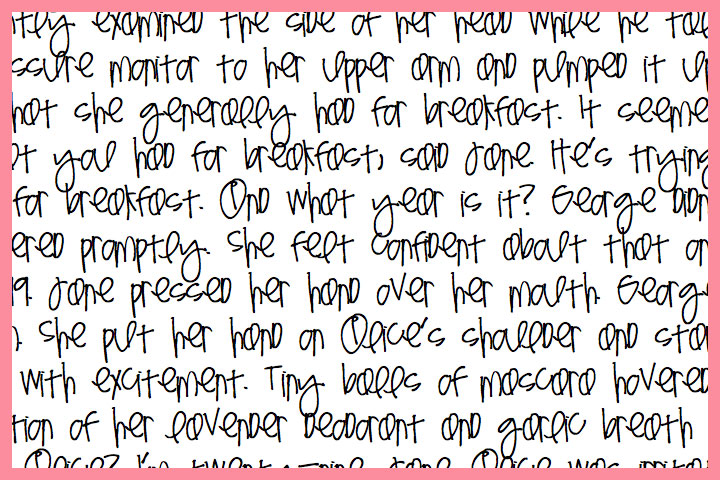 ntly examined the side of her head while he tal
ssure monitor to her upper arm and pumped it u
hat she generally had for breakfast. It seeme
t you had for breakfast, said Jane. He's trying
for breakfast. And what year is it? George didn
ered promptly. She felt confident about that an
9. Jane pressed her hand over her mouth. Georg
. She put her hand on Alice's shoulder and sta
with excitement. Tiny balls of mascara hovered
tion of her lavender deodorant and garlic breath
Alice? I'm twenty-nine, Jane. Alice was